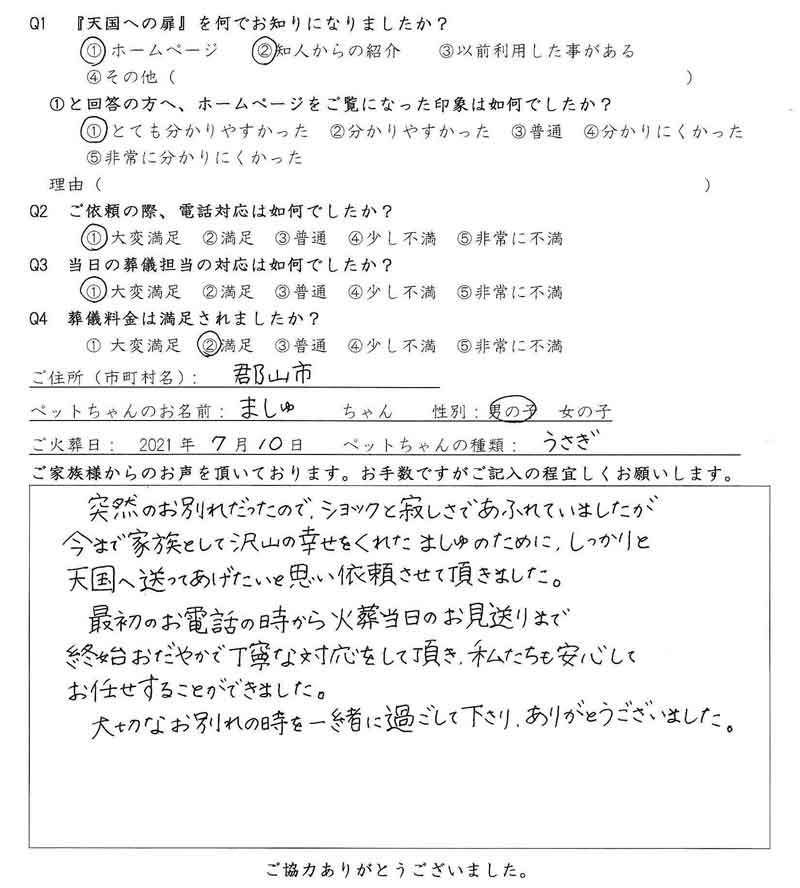 Q1 『天国への扉』を何でお知りになりましたか？
①ホームページ ②知人からの紹介 ③以前利用した事がある
④その他（ ）
①と回答の方へ、ホームページをご覧になった印象は如何でしたか？
①とても分かりやすかった ②分かりやすかった ③普通 ④分かりにくかった
⑤非常に分かりにくかった
理由（ ）
Q2 ご依頼の際、電話対応は如何でしたか？
①大変満足 ②満足 ③普通 ④少し不満 ⑤非常に不満
Q3 当日の葬儀担当の対応は如何でしたか？
①大変満足 ②満足 ③普通 ④少し不満 ⑤非常に不満
Q4 葬儀料金は満足されましたか？
① 大変満足 ②満足 ③普通 ④少し不満 ⑤非常に不満
ご住所（市町村名）： 郡山市
ペットちゃんのお名前： ましゅ ちゃん 性別：男の子 女の子
ご火葬日： 2021年 7月10日 ペットちゃんの種類： うさぎ
ご家族様からのお声を頂いております。お手数ですがご記入の程宜しくお願いします。
突然のお別れだったので、ショックと寂しさであふれていましたが
今まで家族として沢山の幸せをくれた ましゅのために、しっかりと
天国へ送ってあげたいと思い依頼させて頂きました。
最初のお電話の時から火葬当日のお見送りまで
終始おだやかで丁寧な対応をして頂き、私たちも安心して
お任せすることができました。
大切なお別れの時を一緒に過ごして下さり、ありがとうございました。
ご協力ありがとうございました。